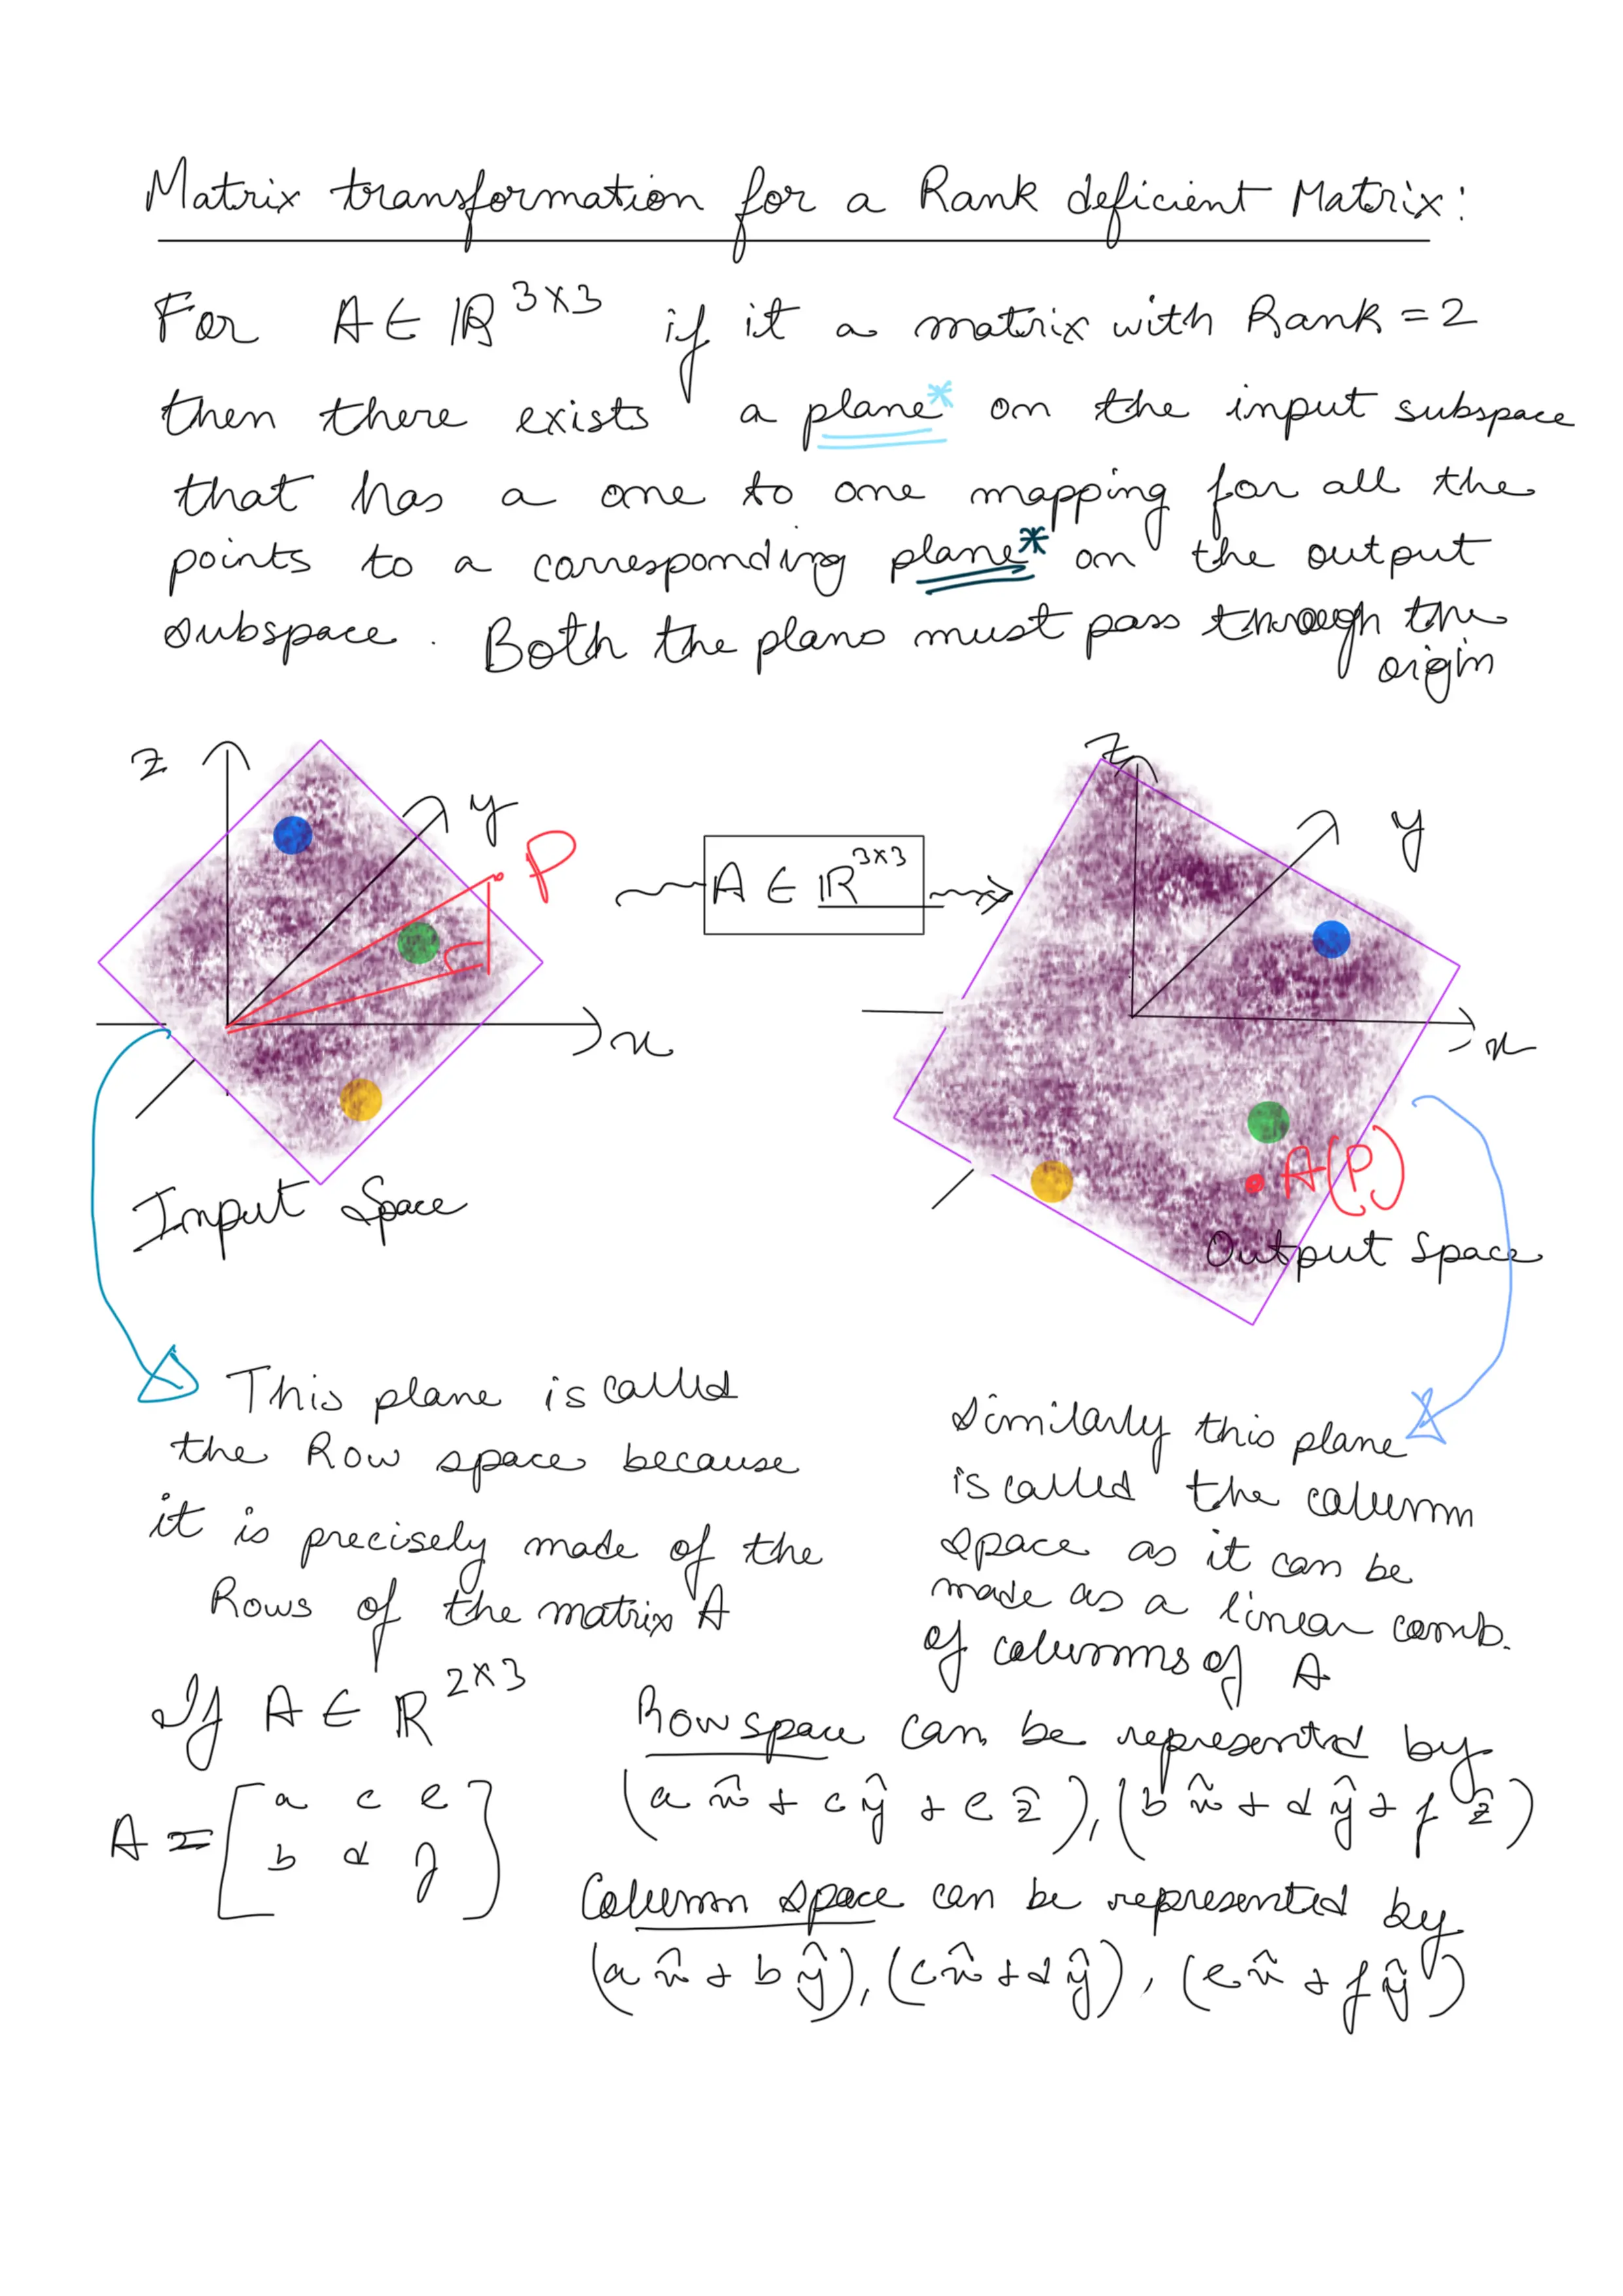 Matrix transformation for a Rank deficient Matrix:
For A ∈ ℝ^3×3 if it a matrix with Rank = 2
then there exists a plane* on the input subspace
that has a one to one mapping for all the
points to a corresponding plane* on the output
subspace. Both the plans must pass through the
origin
z
y
P
A ∈ ℝ^3×3
z
y
x
x
A(P)
Input Space
Output Space
This plane is called
the Row space because
it is precisely made of the
Rows of the matrix A
Similarly this plane
is called the column
space as it can be
made as a linear comb.
of columns of A
If A ∈ ℝ^2×3
A = [a c e
b d f]
Row space can be represented by
(a x̂ + c ŷ + e ẑ), (b x̂ + d ŷ + f ẑ)
Column space can be represented by
(a x̂ + b ŷ), (c x̂ + d ŷ), (e x̂ + f ŷ)